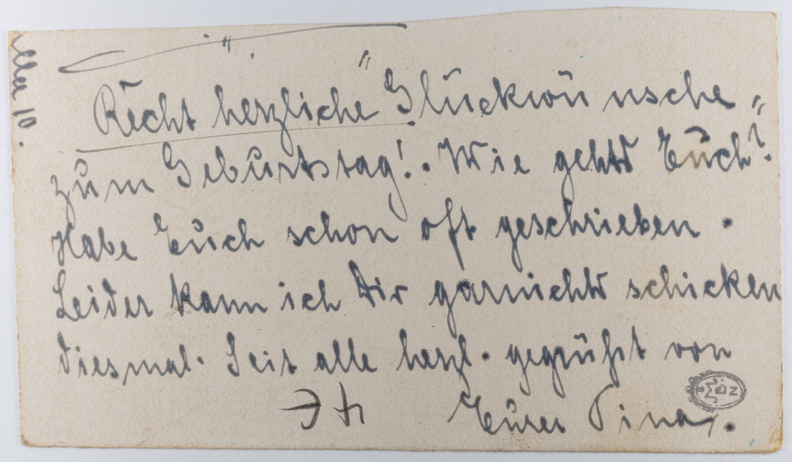 Recht herzliche Glückwünsche
zum Geburtstag! Wie gehts Euch?
Habe Euch schon oft geschrieben.
Leider kann ich Dir garnichts schicken
diesmal. Seit alle herzl. gegrüßt von
Eurer Pina.